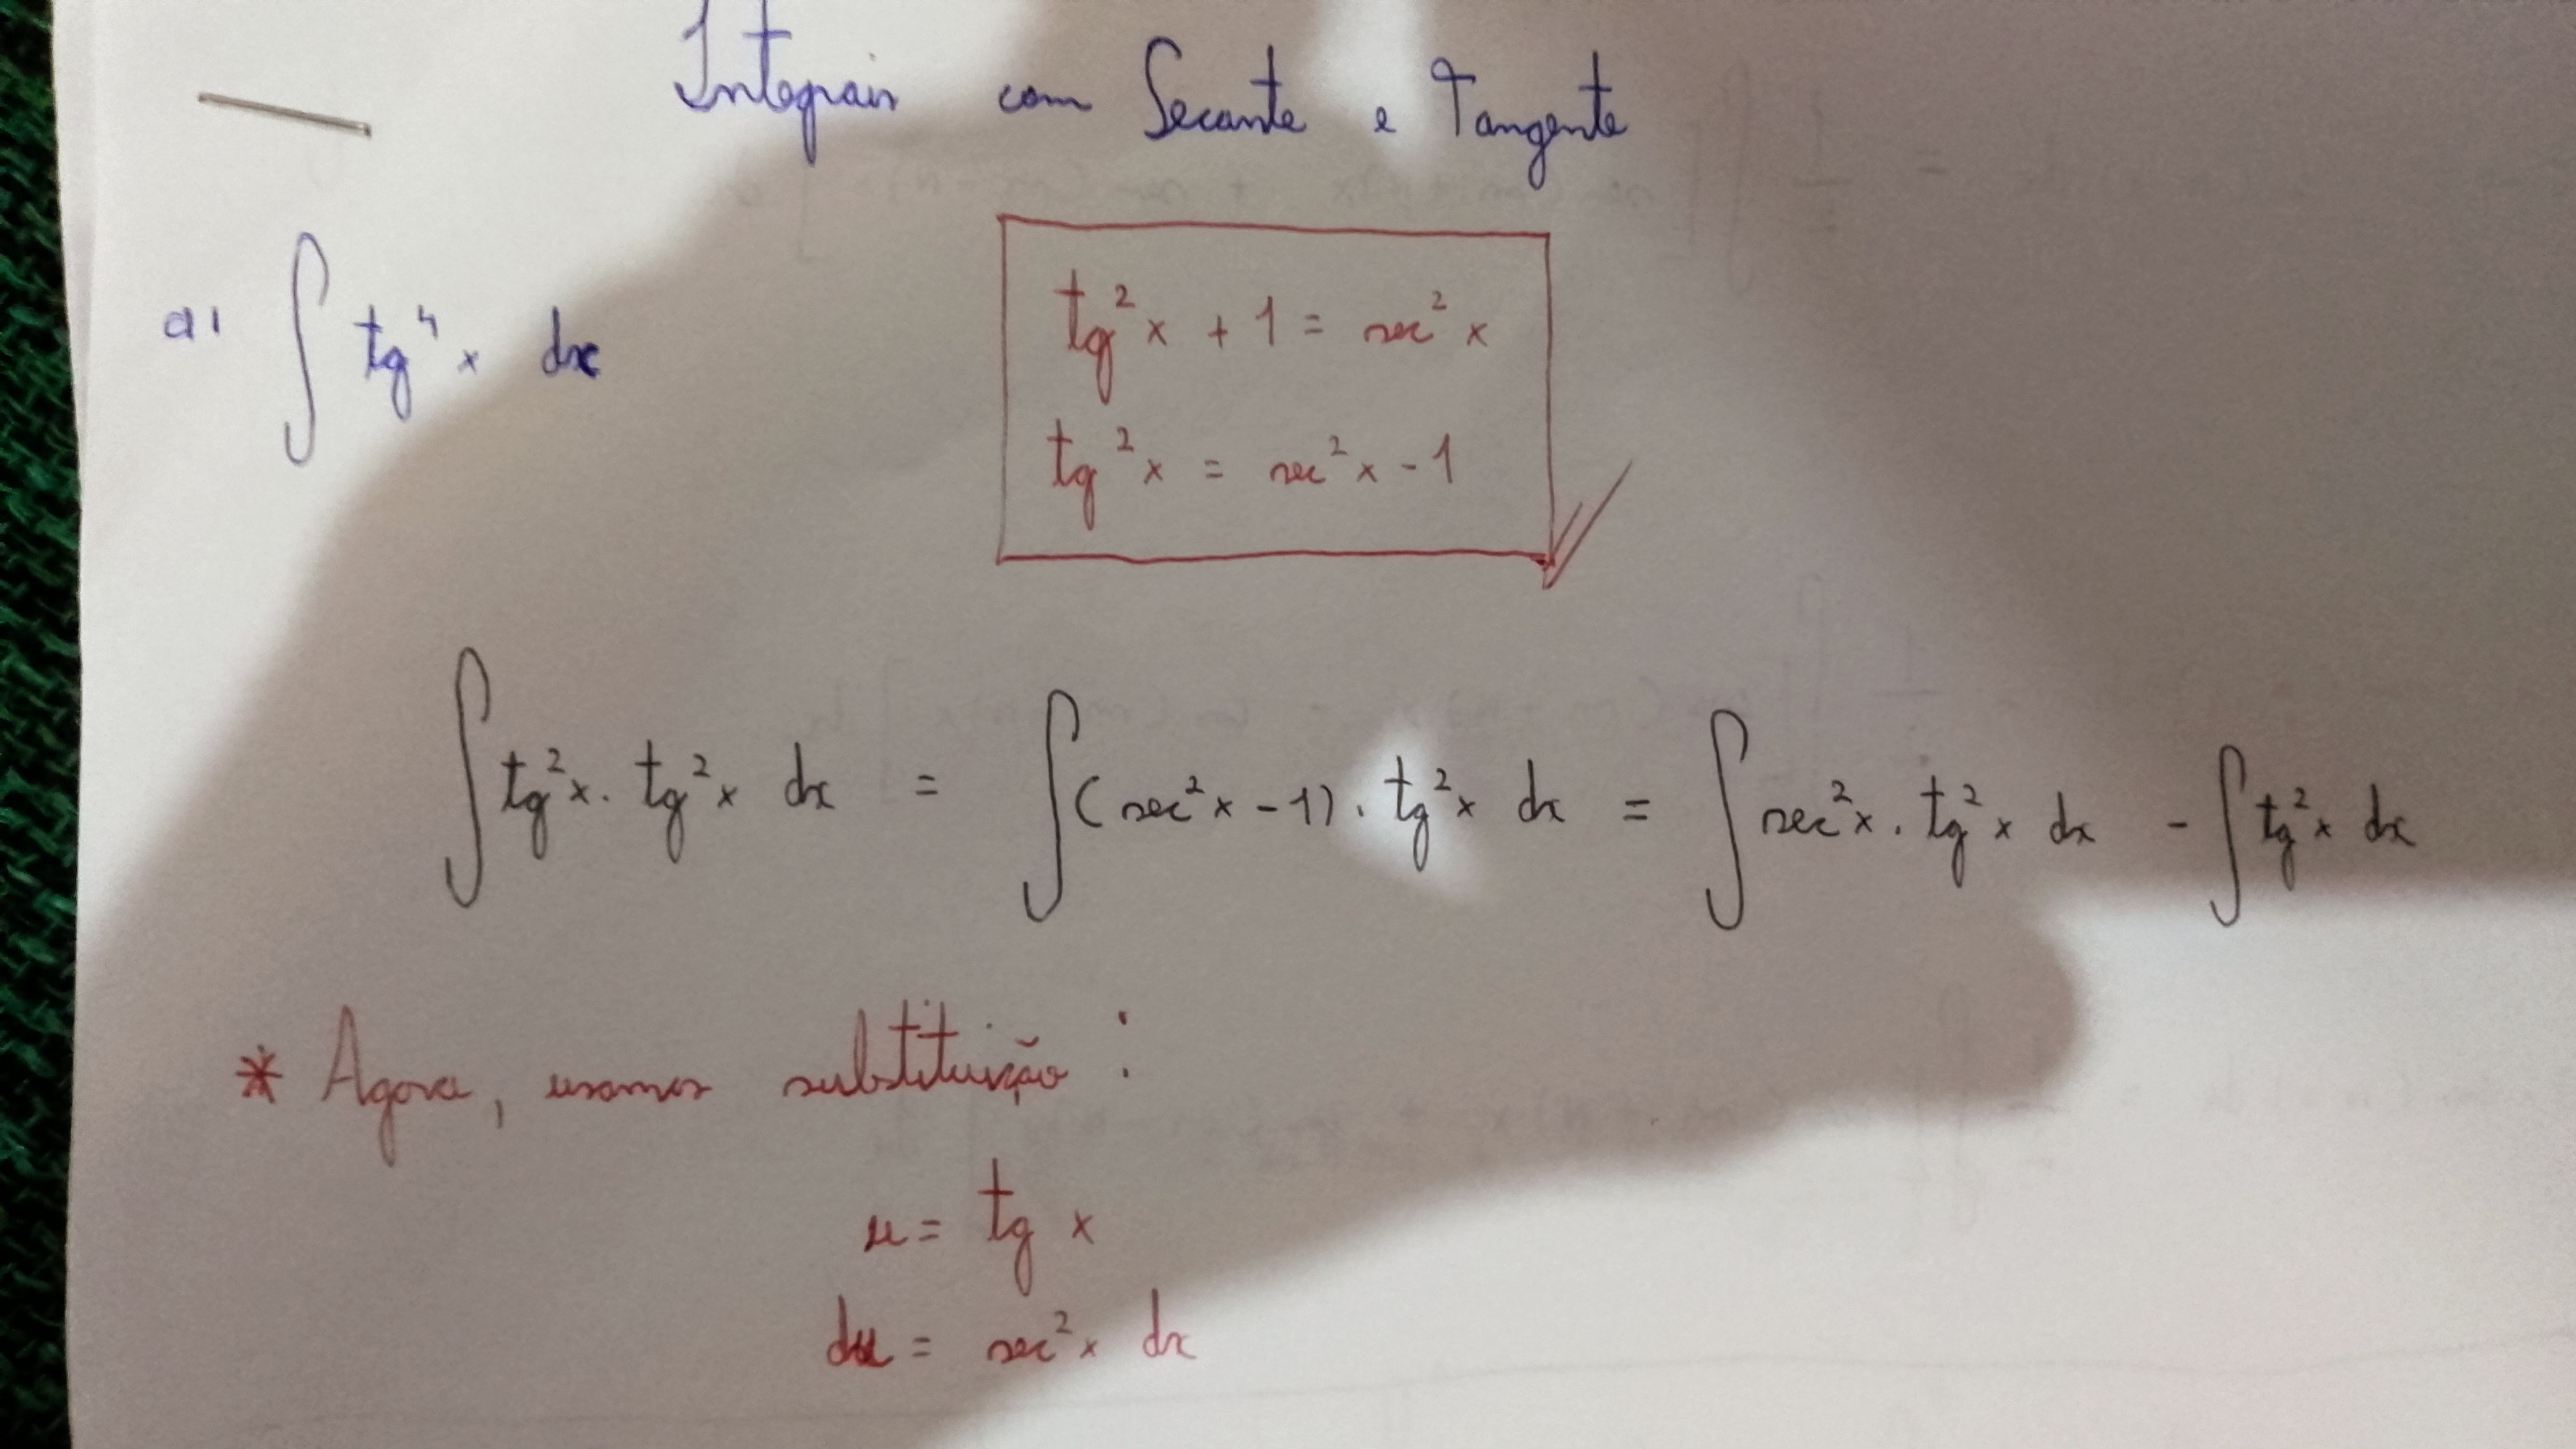 Integrais com Secante e Tangente
a) ∫ tg⁴ x dx
tg² x + 1 = sec² x
tg² x = sec² x - 1
∫ tg² x . tg² x dx = ∫ (sec² x - 1) . tg² x dx = ∫ sec² x . tg² x dx - ∫ tg² x dx
* Agora, usamos substituição :
u = tg x
du = sec² x dx